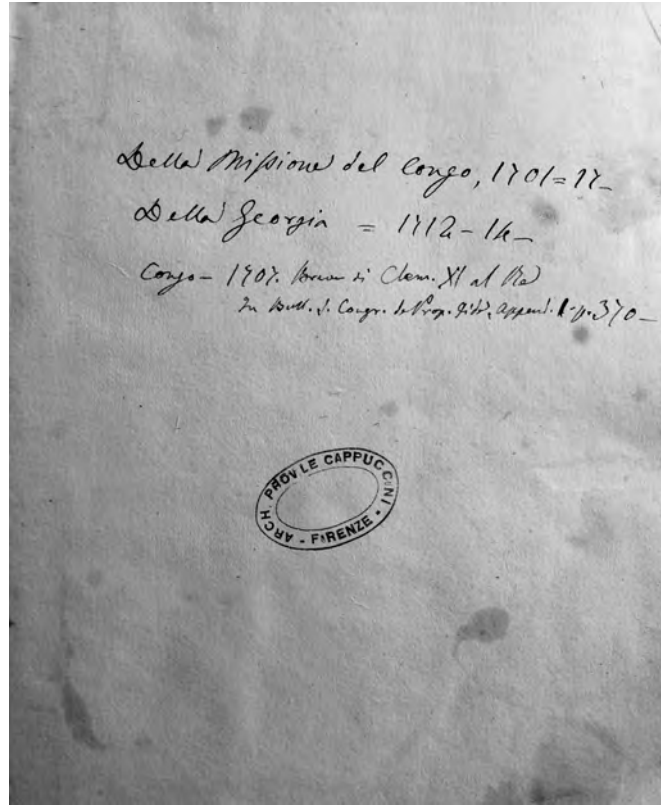 Della Missione del Congo, 1701=17_
Della Georgia = 1712-14_
Congo - 1707. Breve di Clem. XI al Re
In Bull. d. Congr. de Prop. Fide, Append. 1. p. 370_
ARCH. PROV.LE CAPPUCCINI - FIRENZE -